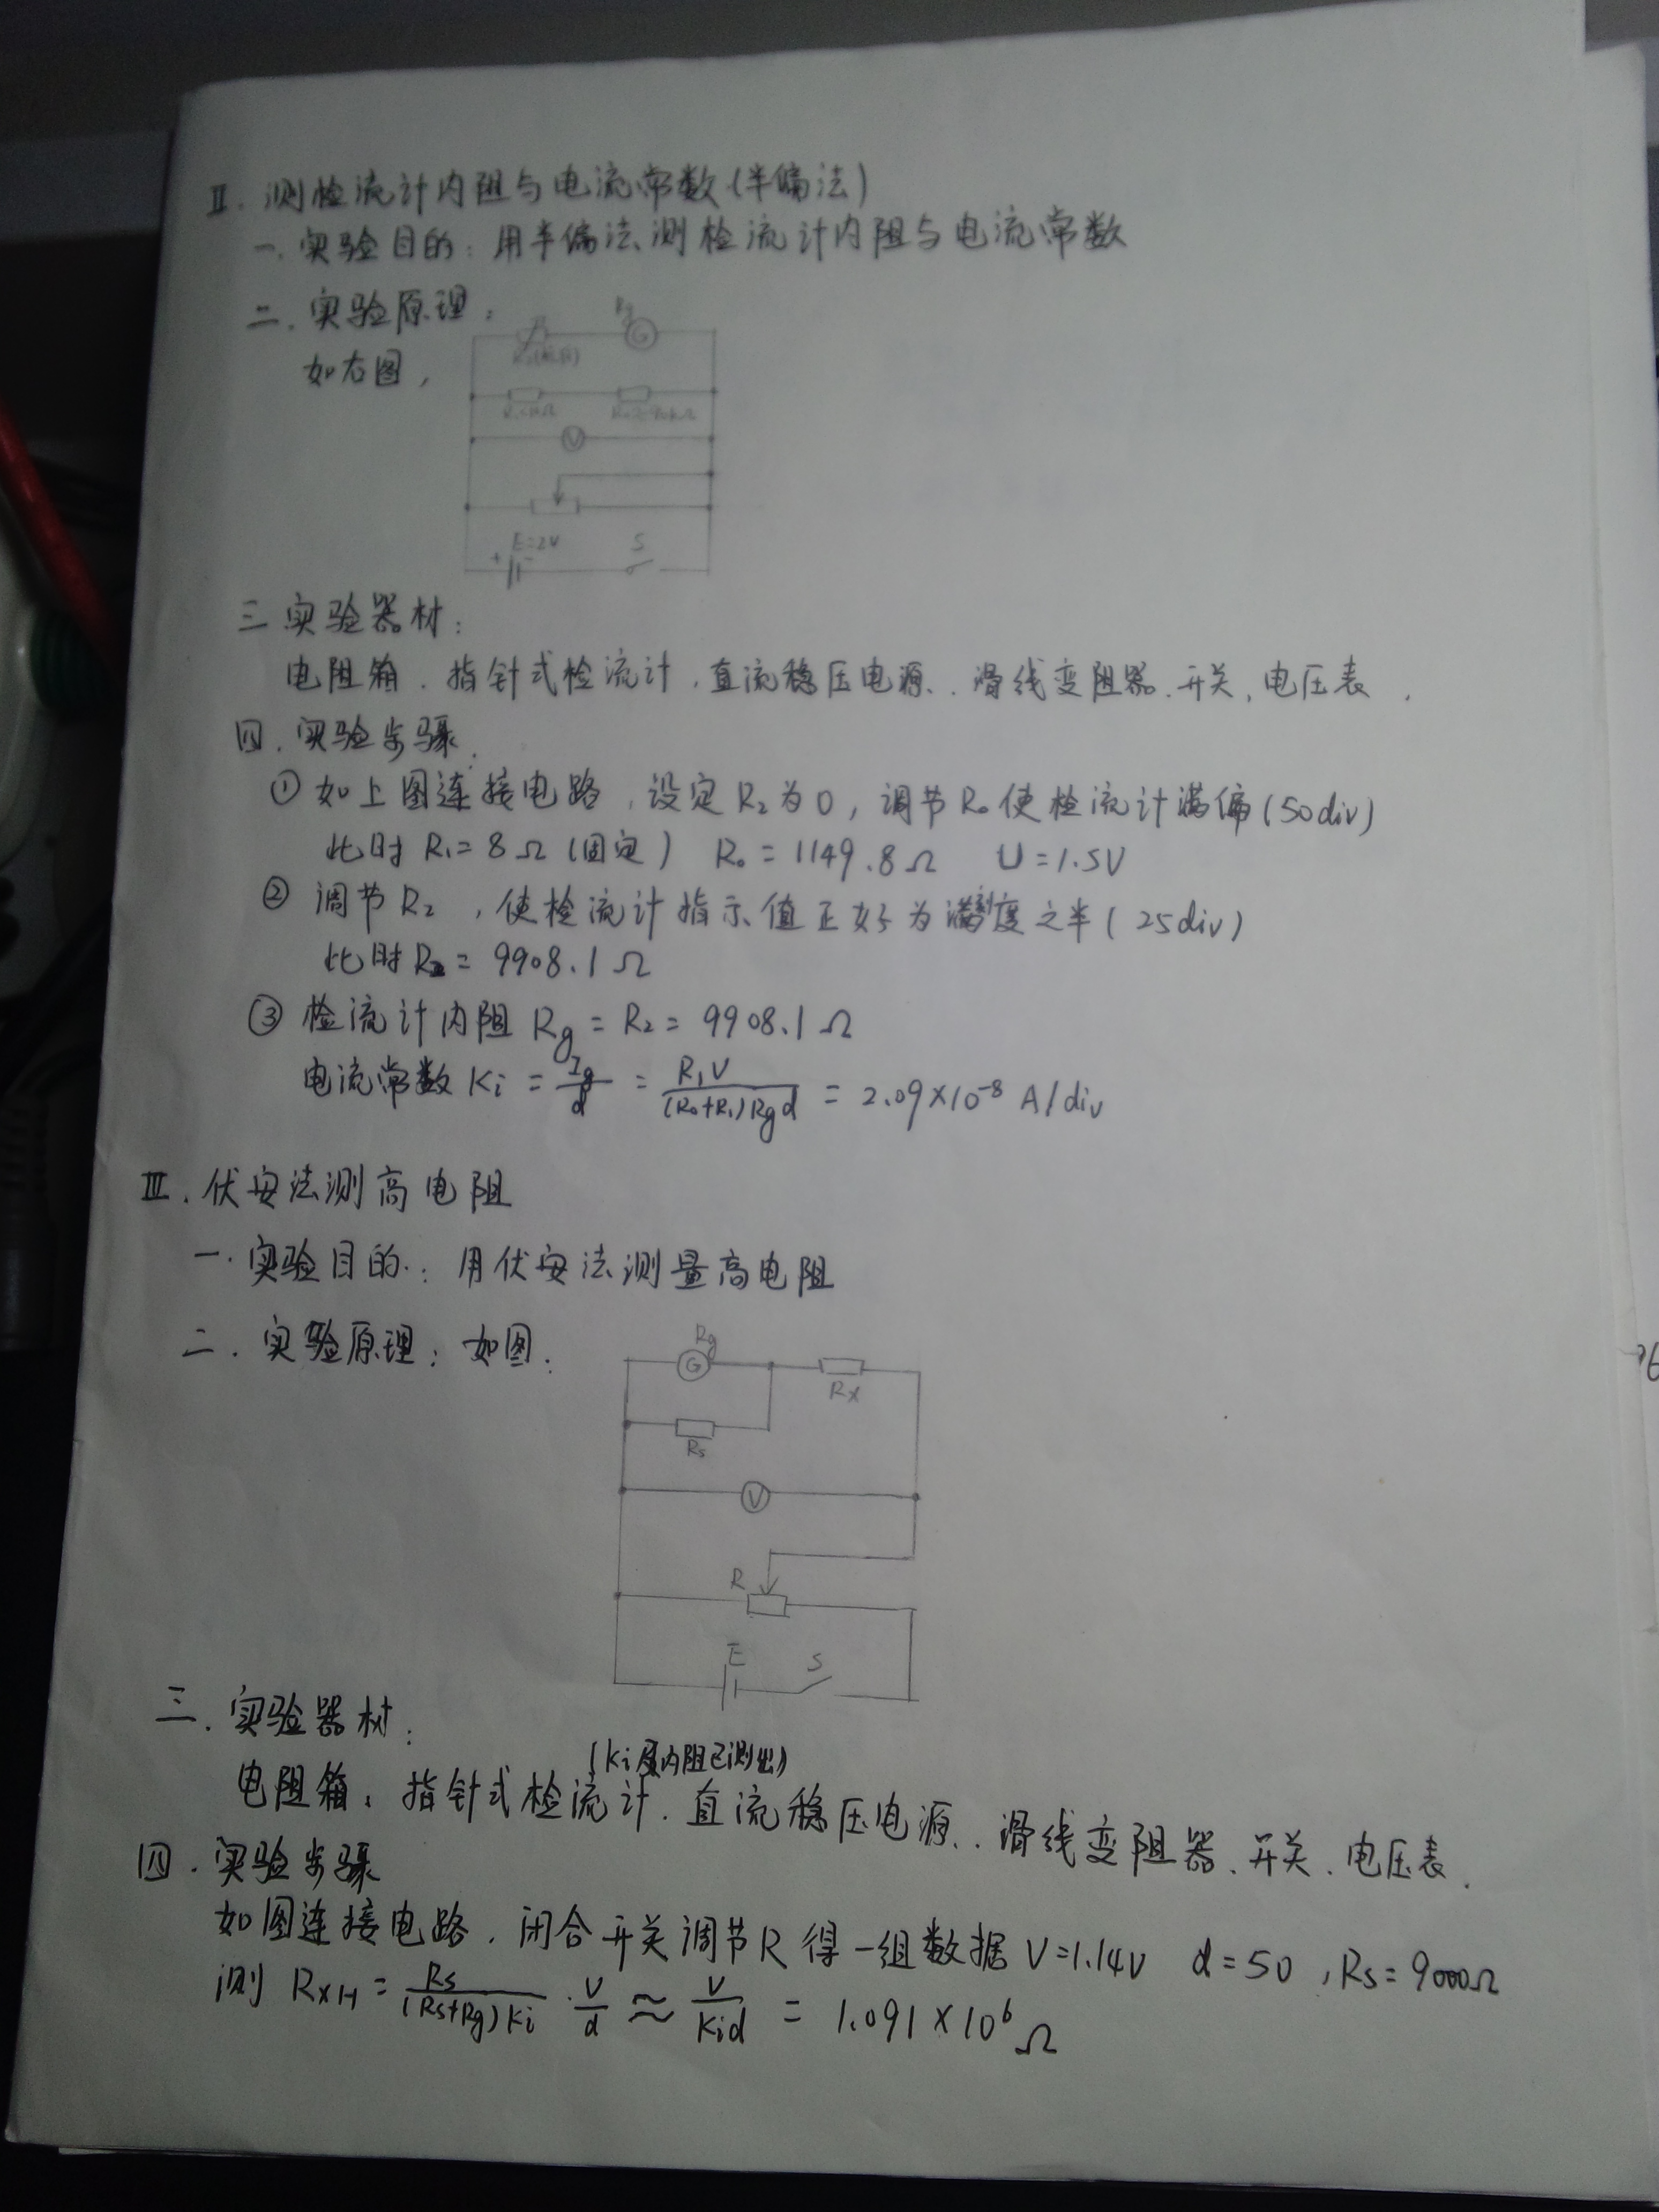 Ⅱ. 测检流计内阻与电流常数(半偏法)
一. 实验目的: 用半偏法测检流计内阻与电流常数
二. 实验原理:
如右图,
Rg
G
V
E=2V
+ -
S
三 实验器材:
电阻箱. 指针式检流计, 直流稳压电源.. 滑线变阻器. 开关, 电压表.
四. 实验步骤.
① 如上图连接电路, 设定R₂为0, 调节R₀使检流计满偏(50div)
此时 R₁=8Ω(固定) R₀=1149.8Ω U=1.5V
② 调节R₂, 使检流计指示值正好为满刻度之半(25div)
此时R₂=9908.1Ω
③ 检流计内阻 Rg=R₂=9908.1Ω
电流常数Ki = Ig/d = R₁V/(R₀+R₁)Rgd = 2.09×10⁻⁸ A/div
Ⅲ. 伏安法测高电阻
一. 实验目的.: 用伏安法测量高电阻
二. 实验原理: 如图:
Rg
G
Rx
Rs
V
R
E
S
三. 实验器材:
(Ki及内阻已测出)
电阻箱. 指针式检流计. 直流稳压电源.. 滑线变阻器. 开关. 电压表.
四. 实验步骤
如图连接电路. 闭合开关调节R得一组数据V=1.14V d=50, Rs=9000Ω
则 RxH = Rs/(Rs+Rg)Ki · V/d ≈ V/Kid = 1.091×10⁶Ω